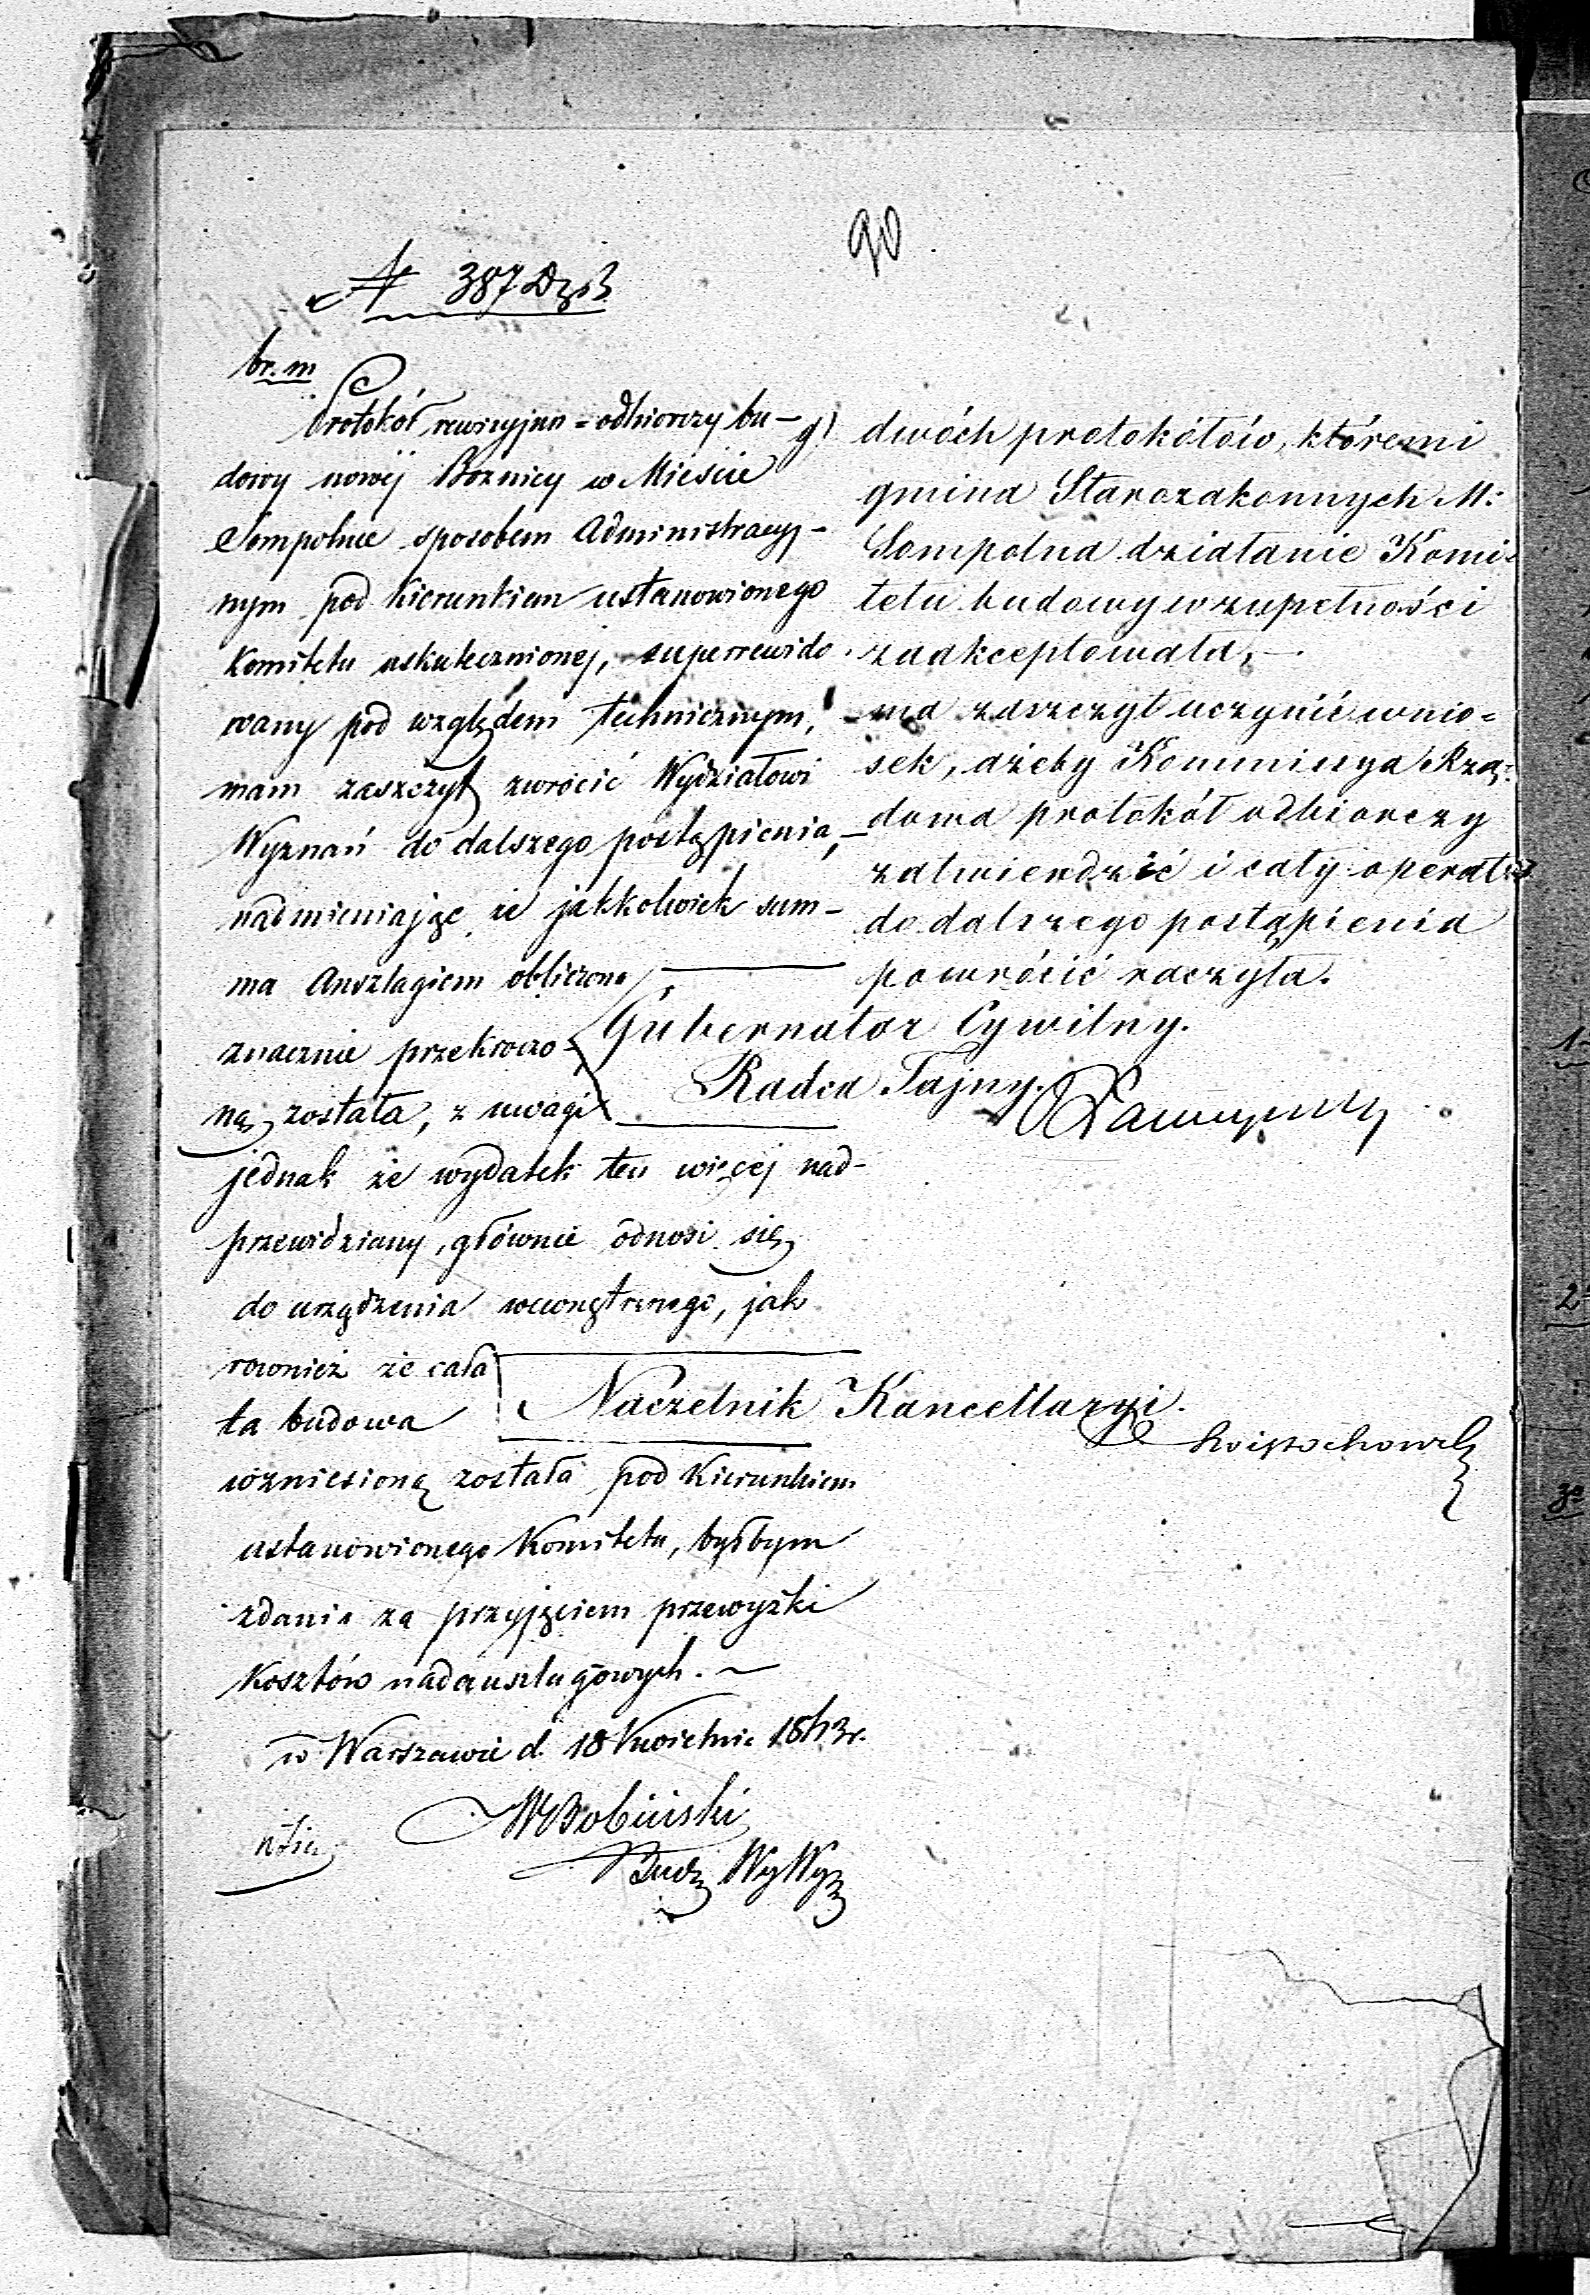 90
№ 387
br. m
Protokół rewizyjno = odbiorczy bu-
dowy nowéj Bożnicy w Mieście
Sompolnie sposobem Administracyj-
nym pod kierunkiem ustanowionego
Komitetu uskutecznionej, superrewido
wany pod względem technicznym,
mam zaszczyt zwrócić Wydziałowi
Wyznań do dalszego postąpienia, –
nadmieniając że jakkolwiek sum-
ma Anszlagiem obliczona
znacznie przekroczo-
ną została, z uwagi
jednak że wydatek ten więcej nad-
przewidziany, głównie odnosi się
do urządzenia wewnętrznego, jak
rownież że cała
ta budowa
wzniesioną została pod kierunkiem
ustanowionego Komitetu, byłbym
zdania za przyjęciem przewyżki
Kosztów nadanszlagowych. –
w Warszawie d. 18 Kwietnia 1863 r.
WBobiński
Budz WyWyz
g) dwóch protokółów, któremi
gmina Starozakonnych M:
Sompolna działanie Komi-
tetu budowy w zupełności
zaakceptowała, –
ma zaszczyt uczynić wnio=
sek, ażeby Kommissya Rzą=
dowa protokół odbiorczy
zatwierdzić i cały operat
do dalszego postąpienia
powrócić raczyła.
Gubernator Cywilny.
Radca Tajny.
Naczelnik Kancellaryi.